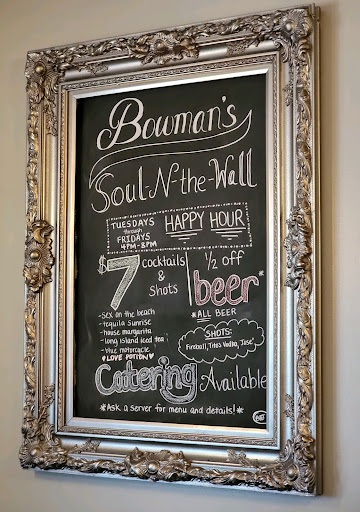 Bowman's
Soul-N-the-Wall
TUESDAYS
through
FRIDAYS
4PM-8PM
HAPPY HOUR
$7 cocktails
&
Shots
-sex on the beach
-tequila sunrise
-house margarita
-long island iced tea
-blue motorcycle
♥LOVE POTION♥
1/2 off
beer*
*ALL BEER
SHOTS:
Fireball, Tito's Vodka, Jose
Catering Available
*Ask a server for menu and details!*